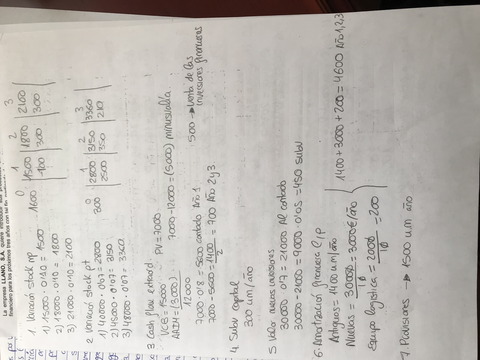 La empresa LLAMO S.A. quiere
financiero para los próximos tres años con las
1. Variación stock mp
1) 15000·0'10 = 1500
2) 18000·0'10 = 1800
3) 21000·0'10 = 2100
0 1 2 3
1600 1500 1800 2100
100 300 300
2 Variación stock pt
1) 40000·0'07 = 2800
2) 45000·0'07 = 3150
3) 48000·0'07 = 3360
0 1 2 3
300 2800 3150 3360
2500 350 210
3 cash flow extraord.
VCB = 15000 PV = 7000
AAIM = (3000) 7000 - 12000 = (5000) minusvalía
12000
7000·0'8 = 5600 contado Año 1
7000 - 5600 = 1400 = 700 Año 2 y 3
2
500 → Venta de las inversiones financieras
4. Subv capital
300 um/año
5 Valor nuevas inversiones
30000·0'7 = 21000 AR contado
30000 - 21000 = 9000·0'05 = 450 subv
6. Amortización financiera C/P
Antiguos = 1400 u.m/año
Nuevas = 30000 = 3000 €/año
10
Equipo logística = 2000 = 200
10
1400 + 3000 + 200 = 4600 Año 1,2,3
7. Provisiones → 1500 u.m año